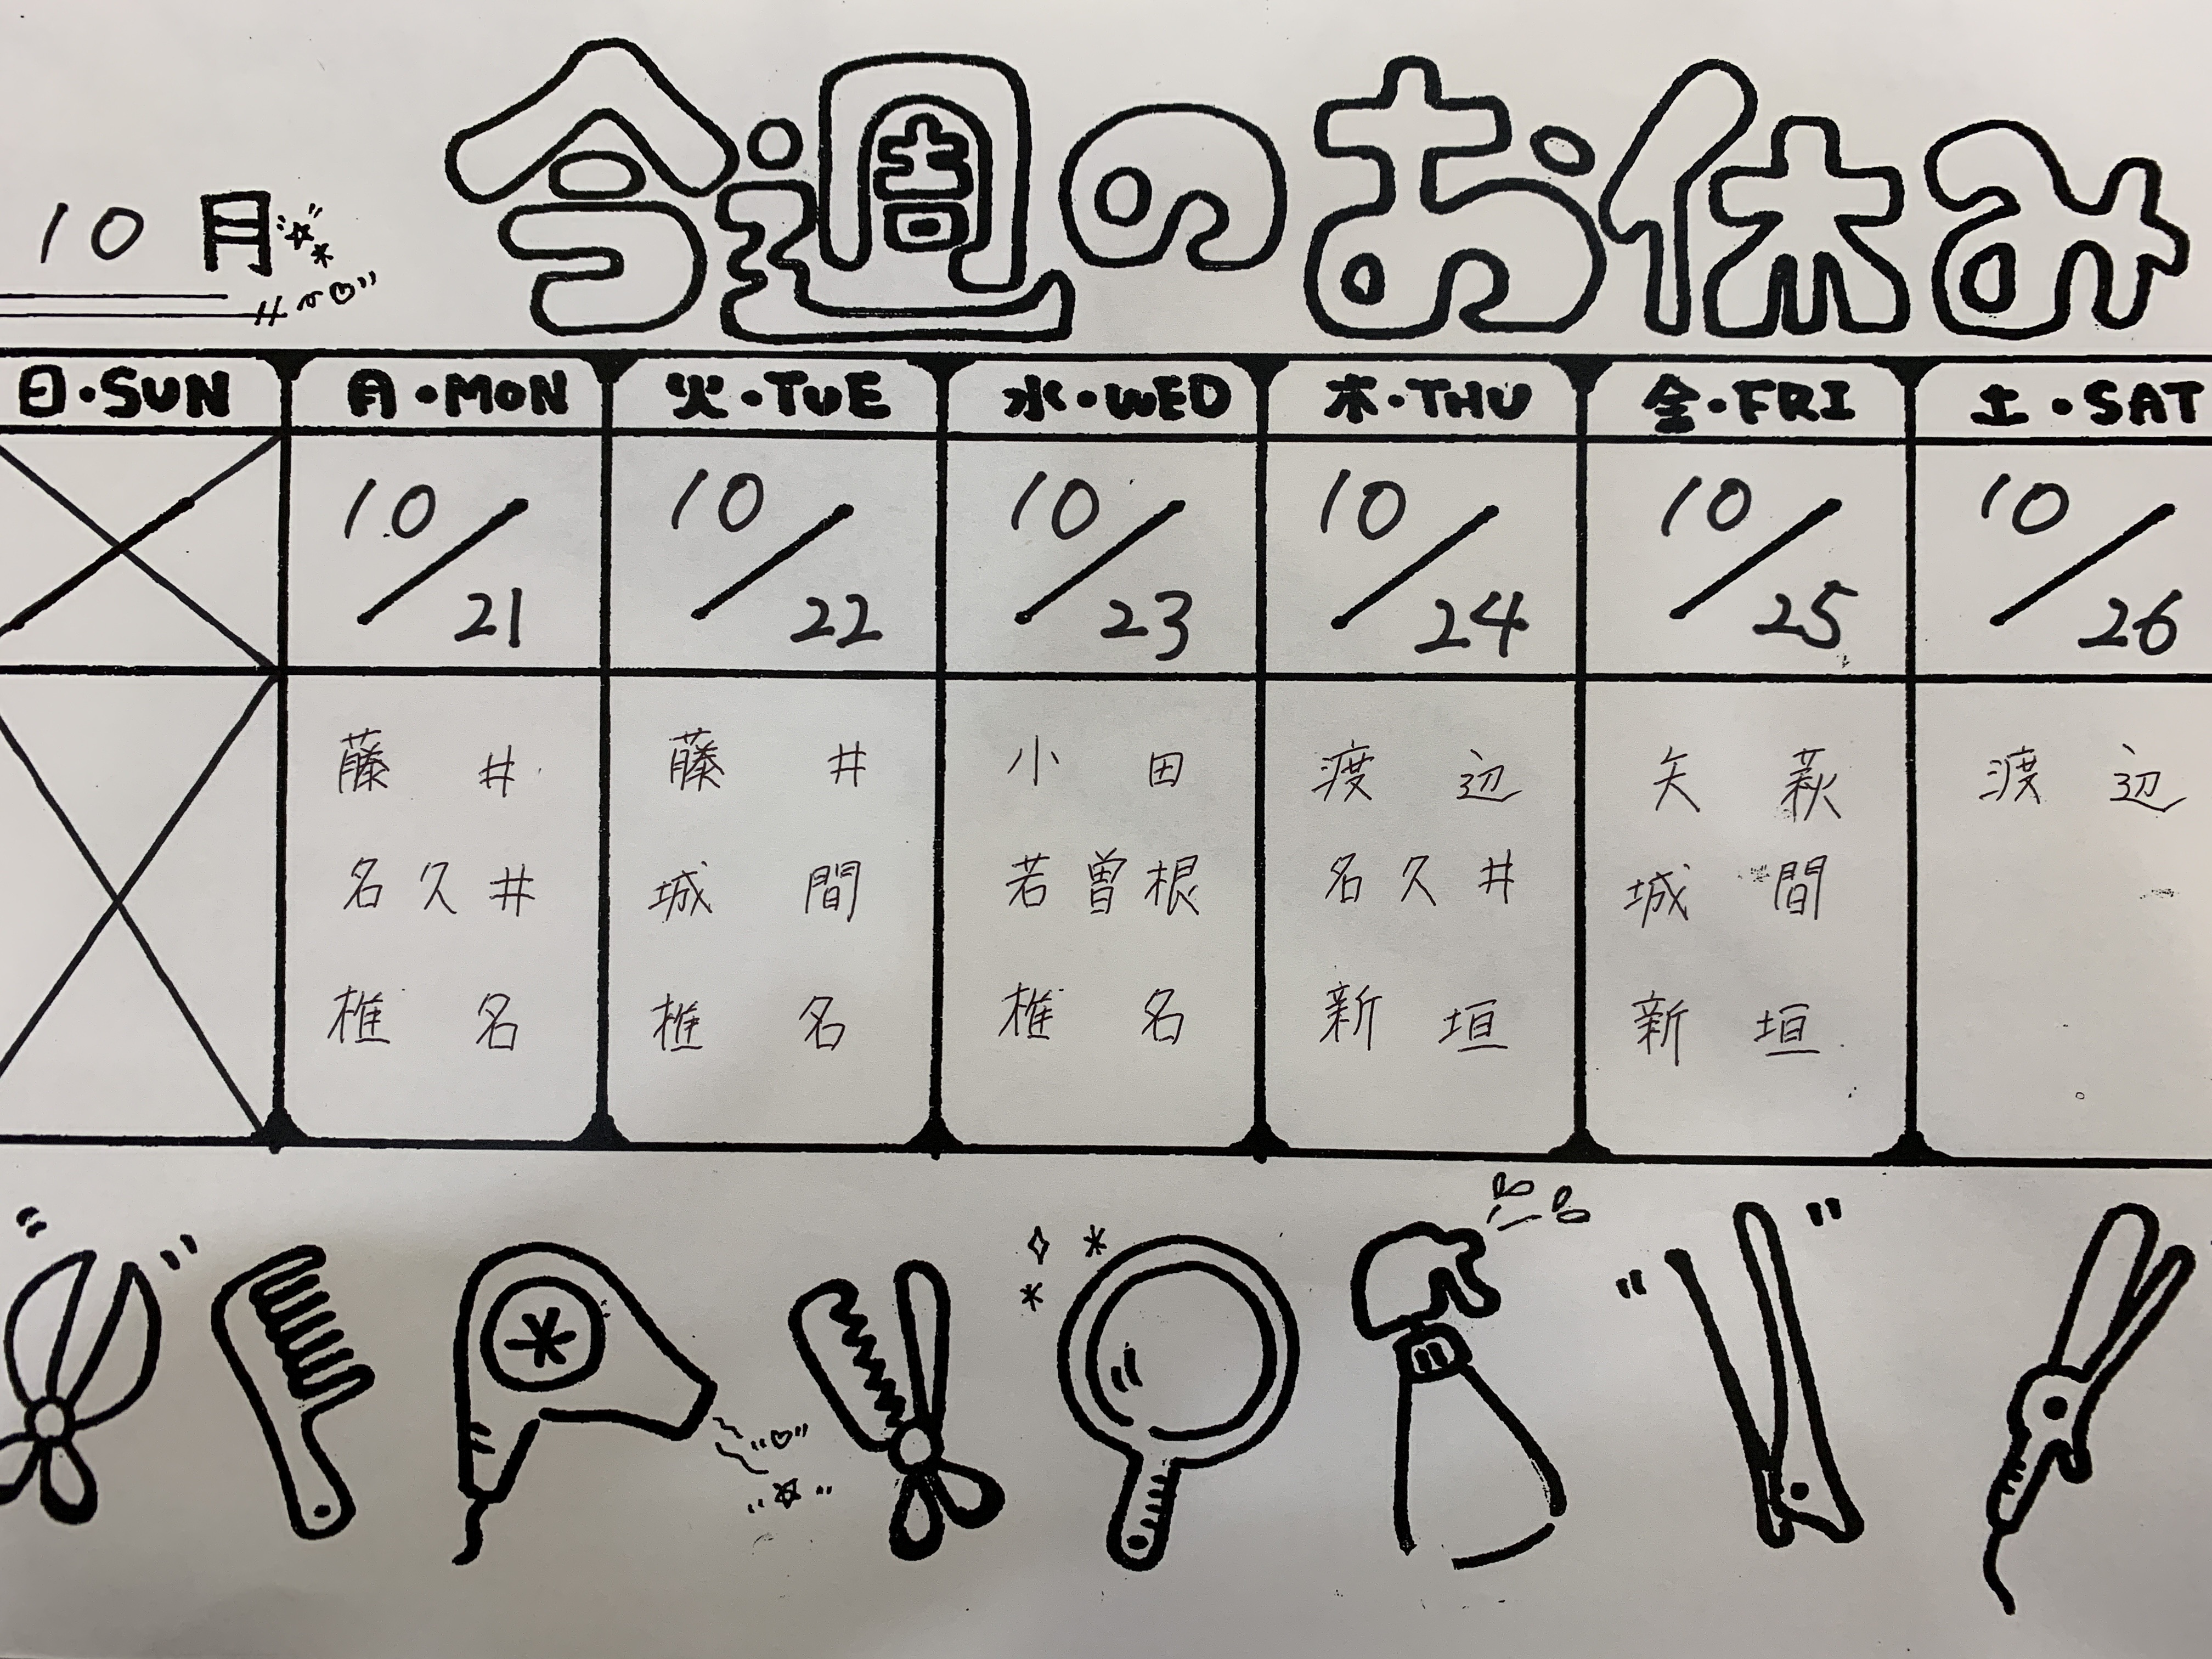 10月
今週のお休み
日・SUN 月・MON 火・TUE 水・WED 木・THU 金・FRI 土・SAT
10/21 10/22 10/23 10/24 10/25 10/26
藤井 藤井 小田 渡辺 矢萩 渡辺
名久井 城間 若曽根 名久井 城間
椎名 椎名 椎名 新垣 新垣